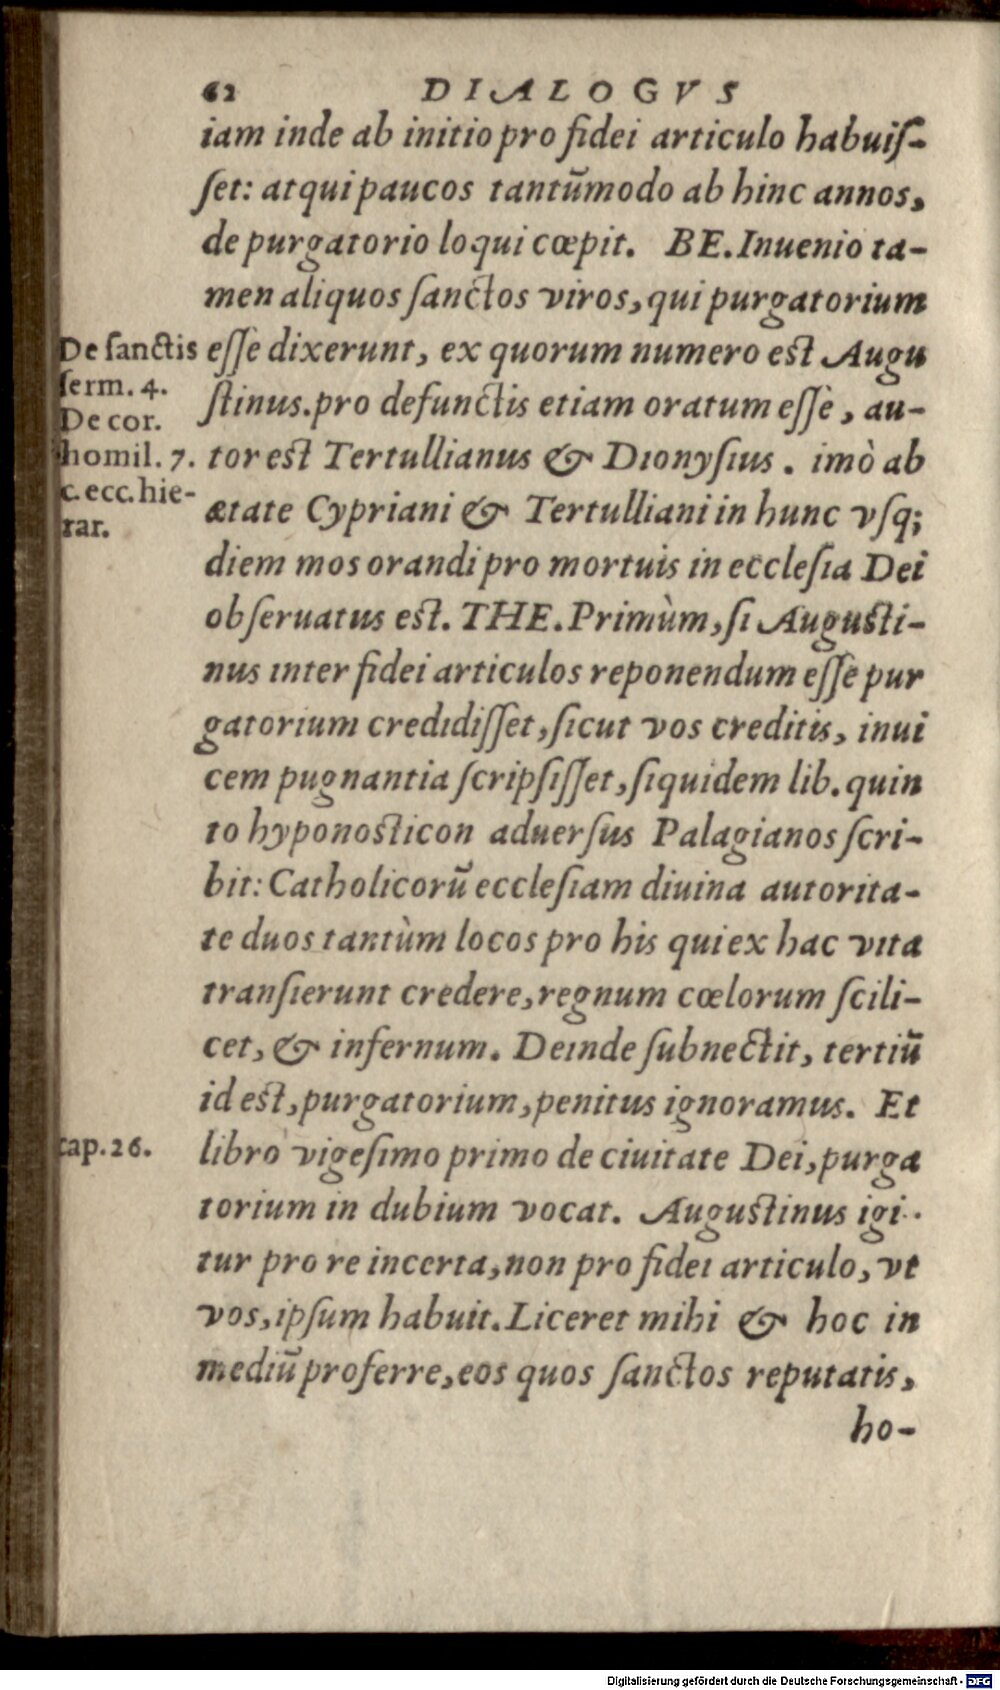 62 DIALOGVS
iam inde ab initio pro fidei articulo habuiſ-
ſet: atqui paucos tantūmodo ab hinc annos,
de purgatorio loqui cœpit. BE. Inuenio ta-
men aliquos ſanctos viros, qui purgatorium
eſſe dixerunt, ex quorum numero est Augu
ſtinus. pro defunctis etiam oratum eſſè, au-
tor est Tertullianus & Dionyſius. imò ab
ætate Cypriani & Tertulliani in hunc vſq;
diem mos orandi pro mortuis in eccleſia Dei
obſeruatus est. THE. Primùm, ſi Auguſti-
nus inter fidei articulos reponendum eſſè pur
gatorium credidiſſet, ſicut vos creditis, inui
cem pugnantia ſcripſiſſet, ſiquidem lib. quin
to hyponoſticon aduerſus Palagianos ſcri-
bit: Catholicorū eccleſiam diuina autorita-
te duos tantùm locos pro his qui ex hac vita
tranſierunt credere, regnum cœlorum ſcili-
cet, & infernum. Deinde ſubnectit, tertiū
id est, purgatorium, penitus ignoramus. Et
libro vigeſimo primo de ciuitate Dei, purga
torium in dubium vocat. Auguſtinus igi-
tur pro re incerta, non pro fidei articulo, vt
vos, ipſum habuit. Liceret mihi & hoc in
mediū proferre, eos quos ſanctos reputatis,
ho-
De ſanctis
ſerm. 4.
De cor.
homil. 7.
c. ecc. hie-
rar.
cap. 26.
Digitalisierung gefördert durch die Deutsche Forschungsgemeinschaft - DFG